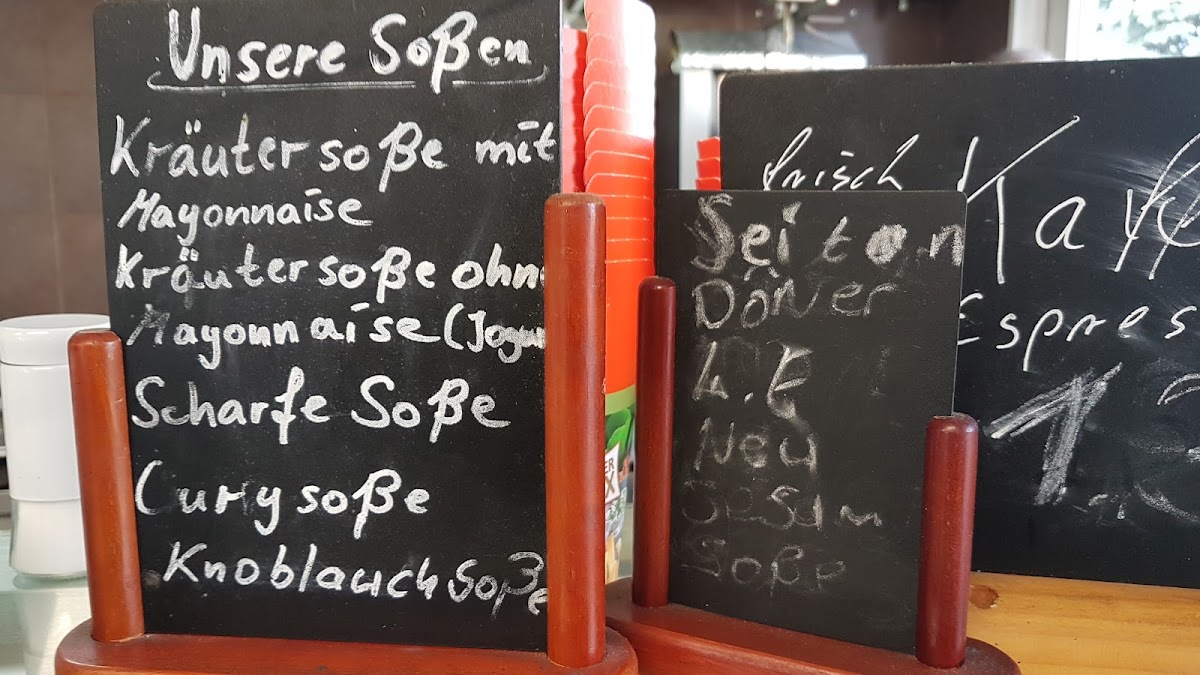 Unsere Soßen
Kräutersoße mit
Mayonnaise
Kräutersoße ohn
Mayonnaise (Jogu
Scharfe Soße
Curysoße
Knoblauch Soße
Seitan
Döner
Neu
Sesam
Soße
frisch
Kaff
Espres